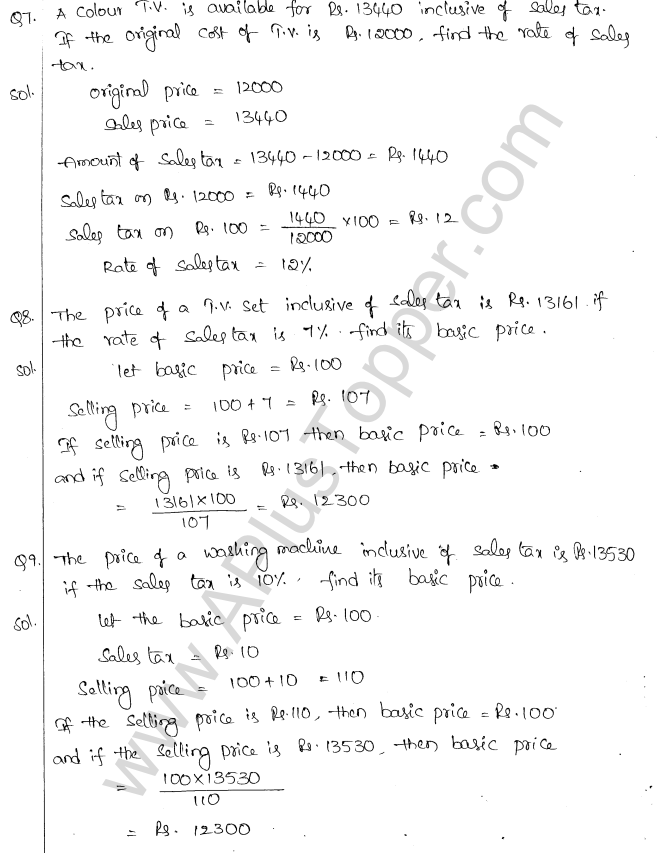 Q7. A Colour T.V. is available for Rs. 13440 inclusive of sales tax.
If the original cost of T.V. is Rs. 12000, find the rate of sales
tax.
Sol. Original price = 12000
Sales price = 13440
Amount of sales tax = 13440 - 12000 = Rs. 1440
Sales tax on Rs. 12000 = Rs. 1440
Sales tax on Rs. 100 = 1440/12000 × 100 = Rs. 12
Rate of sales tax = 12%
Q8. The price of a T.V. set inclusive of sales tax is Rs. 13161. if
the rate of sales tax is 7%. find its basic price.
Sol. let basic price = Rs. 100
Selling price = 100 + 7 = Rs. 107
If selling price is Rs. 107 then basic price = Rs. 100
and if selling price is Rs. 13161, then basic price
= 13161×100/107 = Rs. 12300
Q9. The price of a washing machine inclusive of sales tax is Rs. 13530
if the sales tax is 10%, find its basic price.
Sol. let the basic price = Rs. 100.
Sales tax = Rs. 10
Selling price = 100 + 10 = 110
If the selling price is Rs. 110, then basic price = Rs. 100
and if the selling price is Rs. 13530, then basic price
= 100×13530/110
= Rs. 12300
www.APlusTopper.com